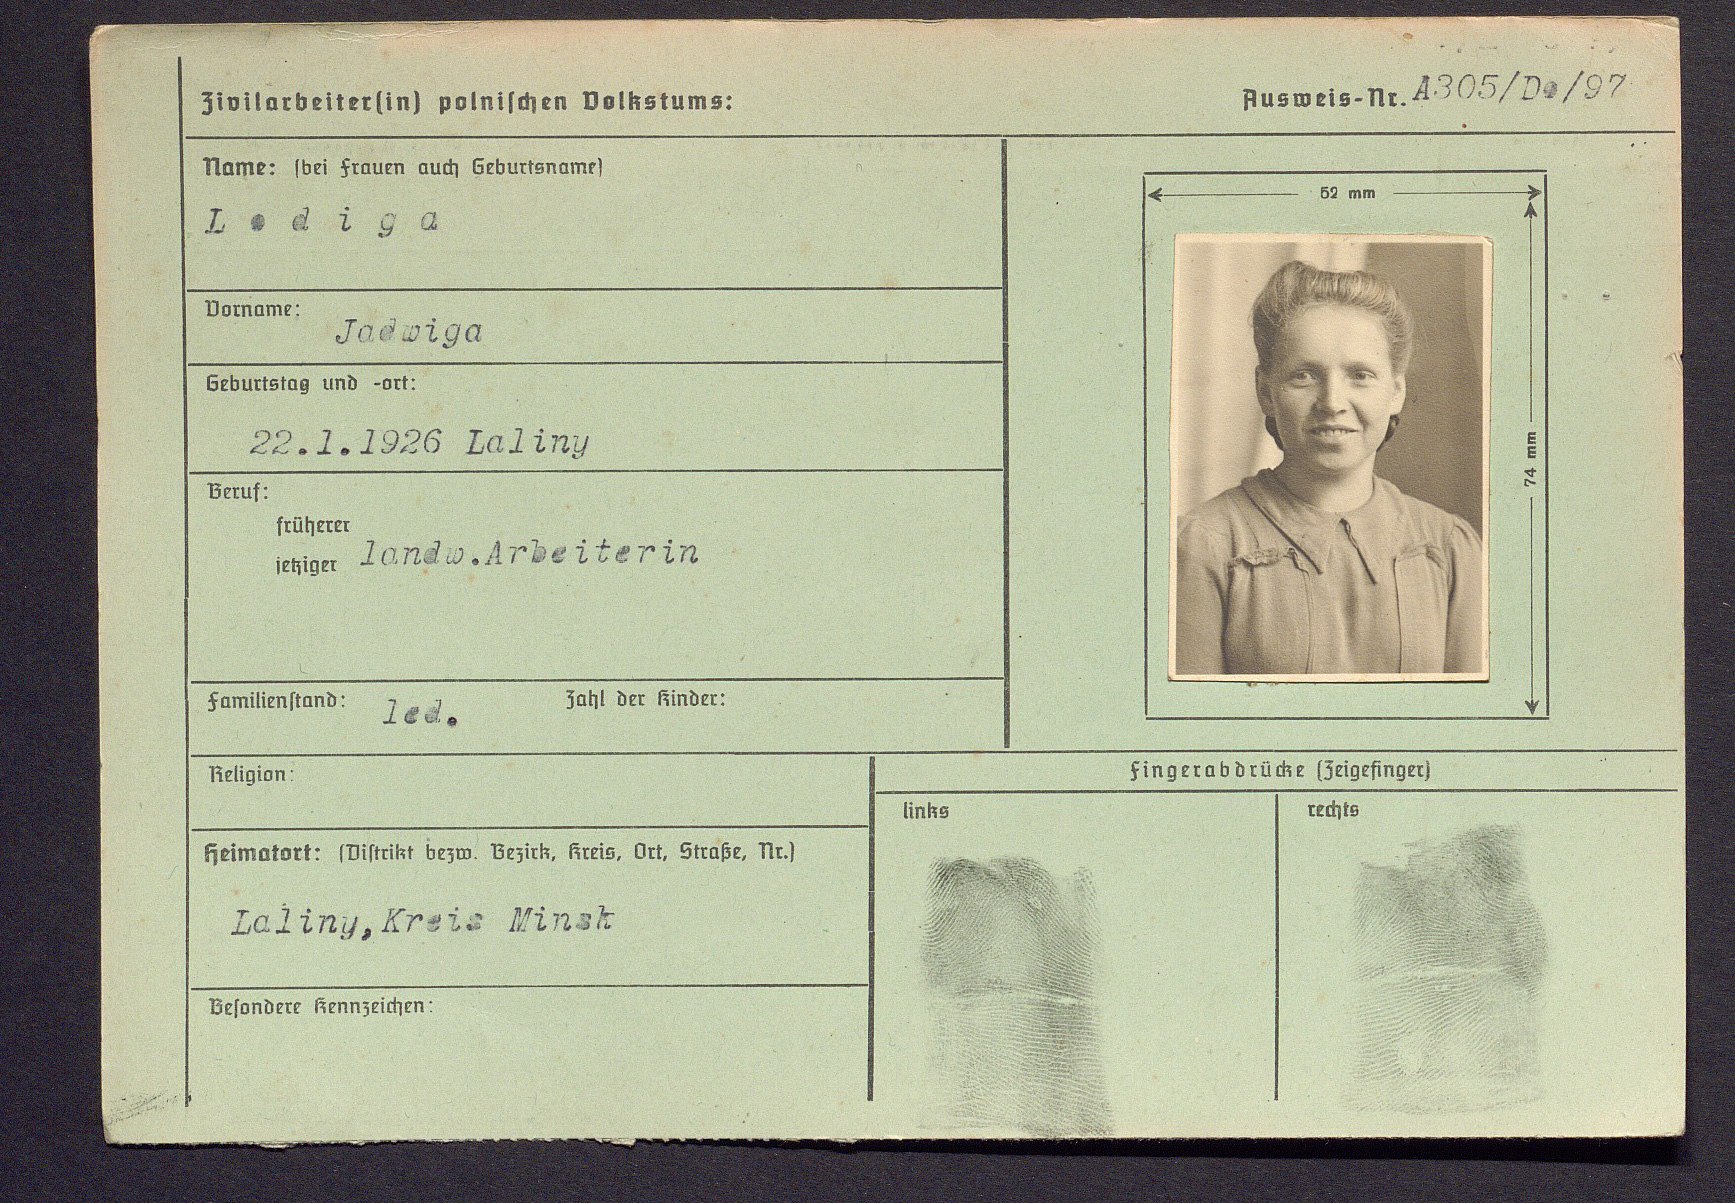 Zivilarbeiter(in) polniſchen Volkstums:
Ausweis-Nr. A305/De/97
Name: (bei Frauen auch Geburtsname)
L e d i g a
Vorname:
Jadwiga
Geburtstag und -ort:
22.1.1926 Laliny
Beruf:
früherer
jetziger landw.Arbeiterin
Familienſtand: led. Zahl der Kinder:
Religion:
Heimatort: (Diſtrikt bezw. Bezirk, Kreis, Ort, Straße, Nr.)
Laliny,Kreis Minsk
Beſondere Kennzeichen:
52 mm
74 mm
Fingerabdrücke (Zeigefinger)
links
rechts